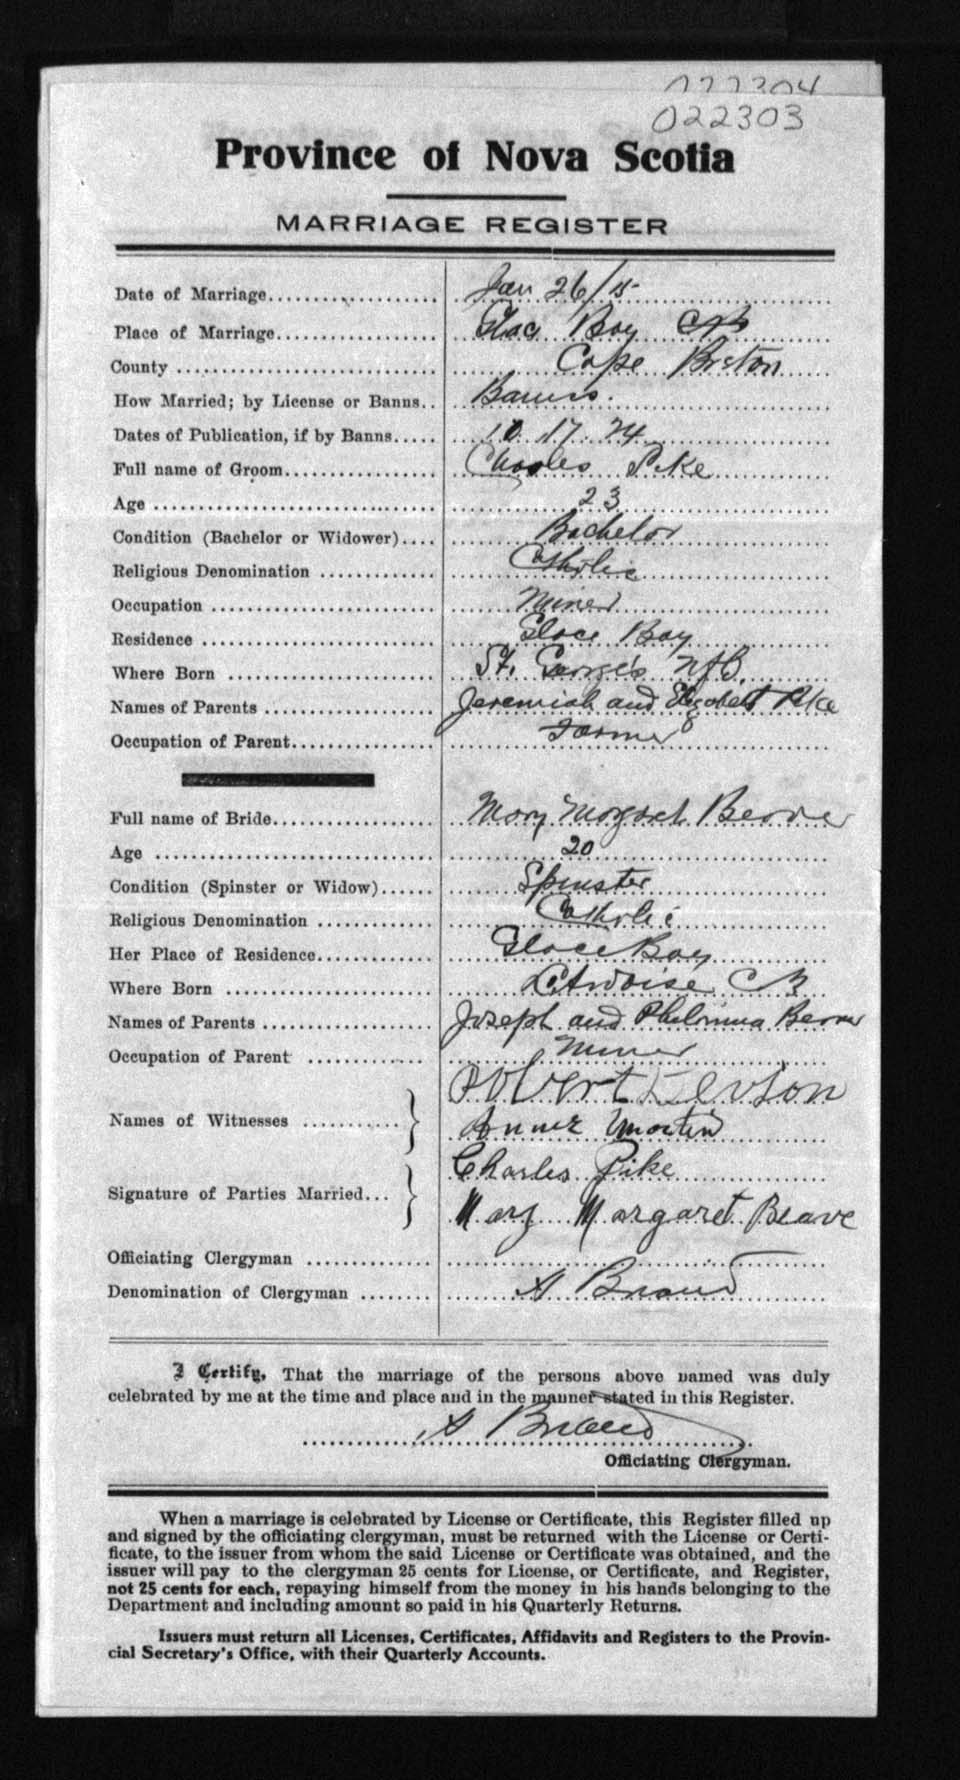 022304
022303
Province of Nova Scotia
MARRIAGE REGISTER
Date of Marriage.................... Jan 26/15
Place of Marriage................... Glace Bay CB
County ............................. Cape Breton
How Married; by License or Banns.. Banns.
Dates of Publication, if by Banns..... 10. 17. 24
Full name of Groom................. Charles Pike
Age ................................ 23
Condition (Bachelor or Widower).... Bachelor
Religious Denomination ............. Catholic
Occupation ......................... Miner
Residence .......................... Glace Bay
Where Born ........................ St. George's Nfld.
Names of Parents ................... Jeremiah and Elizabeth Pike
Occupation of Parent................ Farmer
Full name of Bride.................. Mary Margaret Beaver
Age ................................ 20
Condition (Spinster or Widow)...... Spinster
Religious Denomination ............. Catholic
Her Place of Residence............. Glace Bay
Where Born ........................ L'Ardoise CB
Names of Parents ................... Joseph and Philomina Beaver
Occupation of Parent ............. Miner
Robert
Names of Witnesses ...........
Annie Martin
Charles Pike
Signature of Parties Married...
Mary Margaret Beave
Officiating Clergyman ..............
Denomination of Clergyman ........ A Briand
I Certify, That the marriage of the persons above named was duly
celebrated by me at the time and place and in the manner stated in this Register.
A Briand
Officiating Clergyman.
When a marriage is celebrated by License or Certificate, this Register filled up
and signed by the officiating clergyman, must be returned with the License or Certi-
ficate, to the issuer from whom the said License or Certificate was obtained, and the
issuer will pay to the clergyman 25 cents for License, or Certificate, and Register,
not 25 cents for each, repaying himself from the money in his hands belonging to the
Department and including amount so paid in his Quarterly Returns.
Issuers must return all Licenses, Certificates, Affidavits and Registers to the Provin-
cial Secretary's Office, with their Quarterly Accounts.